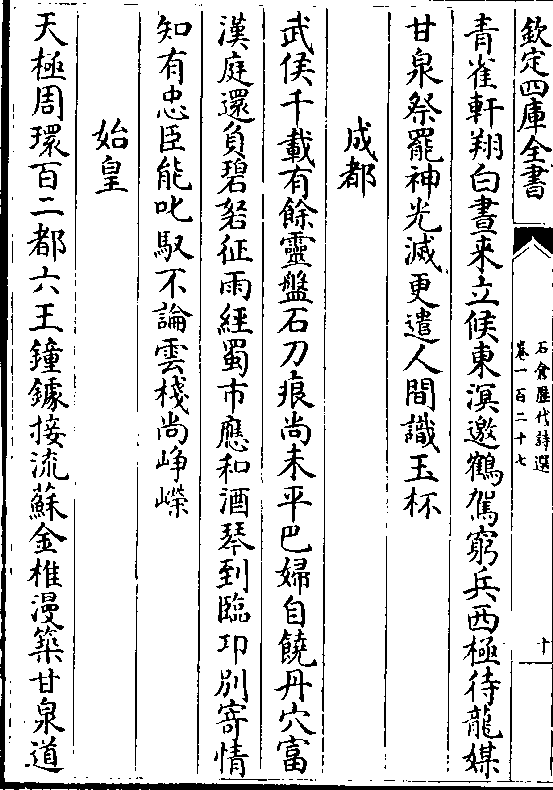 欽定四庫全書
石倉歷代詩選
卷一百二十七
十
青雀軒翔白晝来立候東溟邀鶴駕窮兵西極待龍媒
甘泉祭罷神光滅更遣人間識玉杯
成都
武侯千載有餘靈盤石刀痕尚未平巴婦自饒丹穴富
漢庭還負碧砮征雨經蜀市應和酒琴到臨邛別寄情
知有忠臣能叱馭不論雲棧尚崢嶸
始皇
天極周環百二都六王鐘鐻接流蘇金椎漫築甘泉道